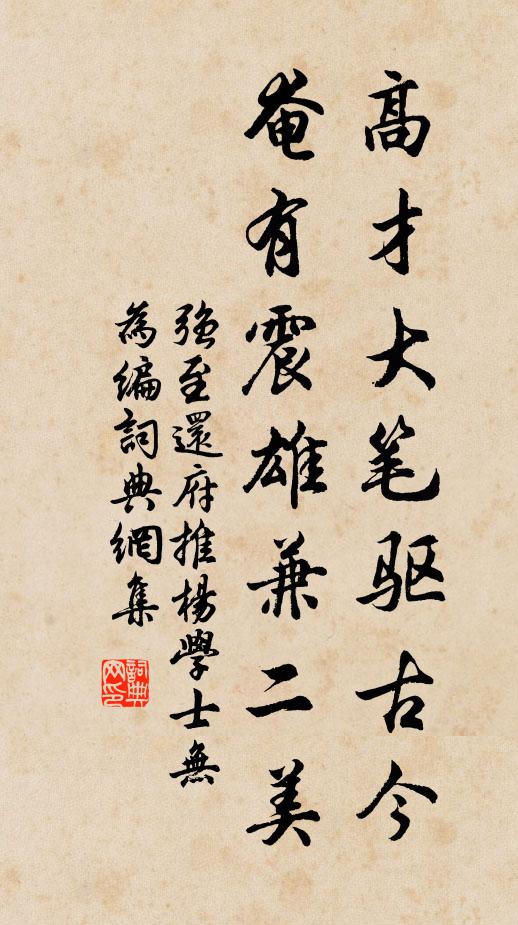 高才大笔驱古今
奄有震雄兼二美
强至還府推楊學士無
為編詞典網集
詞典网印